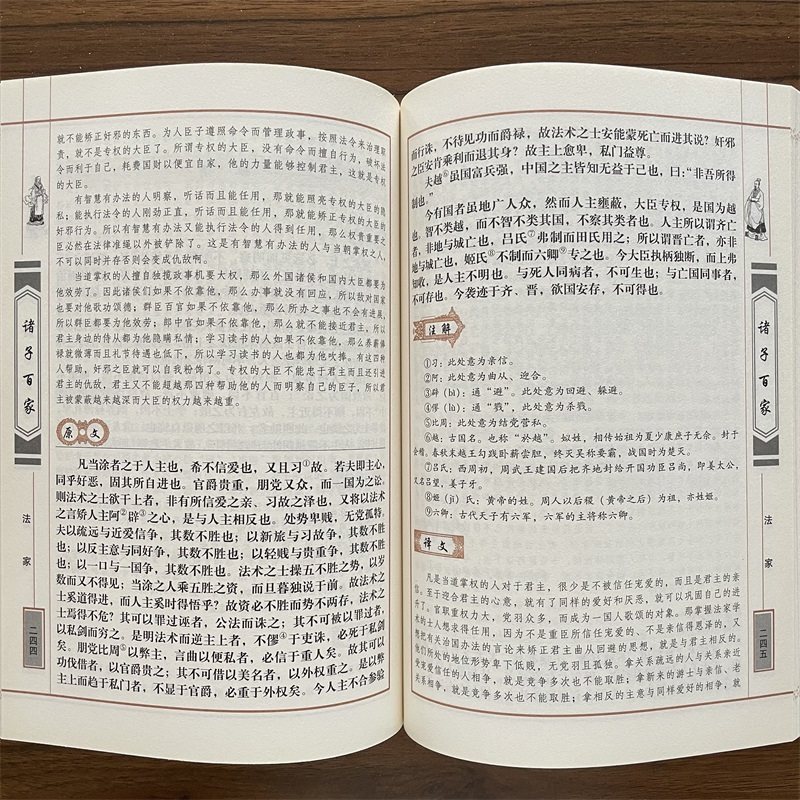 就不能矫正奸邪的东西。为人臣子遵照命令而管理政事，按照法令来治理职
责，就不是专权的大臣了。所谓专权的大臣，没有命令而擅自行为，破坏法
令而利于自己，耗费国财以便宜自家，他的力量能够控制君主，这就是专权
的大臣。
有智慧有办法的人明察，听话而且能任用，那就能照亮专权的大臣的隐
私；能执行法令的人刚劲正直，听话而且能任用，那就能矫正专权的大臣的
奸邪行为。所以有智慧有办法又能执行法令的人得到任用，那么权贵重要之
臣必然在法律准绳以外被铲除了。这是有智慧有办法的人与当朝掌权之人，
不可以同时并存否则会变成仇敌啊。
当道掌权的人擅自独揽政事机要大权，那么外国诸侯和国内大臣都要为
他效劳了。因此诸侯们如果不依靠他，那么办事就没有回应，所以敌对国家
也要对他歌功颂德；群臣百官如果不依靠他，那么所办之事也不会有进展，
所以群臣都要为他效劳；郎中官如果不依靠他，那么就不能接近君主，所以
君主身边的侍人都为他隐瞒私情；学习读书的人如果不依靠他，那么养薪俸
禄就微薄而且礼节待遇也低下，所以学习读书的人也都为他吹捧。有这四种
人帮助，奸邪之臣就可以自我粉饰了。专权的大臣不能忠于君主而且还引进
君主的仇敌，君主又不能超越那四种帮助他的人而明察自己的臣子，所以君
主被蒙蔽越来越深而大臣的权力越来越重。
原文
凡当涂者之于人主也，希不信爱也，又且习①故。若夫即主心，
同乎好恶，固其所自进也。官爵贵重，朋党又众，而一国为之讼，
则法术之士欲干上者，非有所信爱之亲、习故之泽也，又将以法术
之言矫人主阿②辟③之心，是与人主相反也。处势卑贱，无党孤特。
夫以疏远与近爱信争，其数不胜也；以新旅与习故争，其数不胜
也；以反主意与同好争，其数不胜也；以轻贱与贵重争，其数不胜
也；以一口与一国争，其数不胜也。法术之士操五不胜之势，以岁
数而又不得见；当涂之人乘五胜之资，而旦暮独说于前。故法术之
士奚道得进，而人主奚时得悟乎？故资必不胜而势不两存，法术之
士焉得不危？其可以罪过诬者，公法而诛之；其不可被以罪过者，
以私剑而穷之。是明法术而逆主上者，不僇④于吏诛，必死于私剑
矣。朋党比周⑤以弊主，言曲以便私者，必信于重人矣。故其可以
功伐借者，以官爵贵之；其不可借以美名者，以外权重之。是以弊
主上而趋于私门者，不显于官爵，必重于外权矣。今人主不合参验
诸子百家
法家
二四四
而行诛，不待见功而爵禄，故法术之士安能蒙死亡而进其说？奸邪
之臣安肯乘利而退其身？故主上愈卑，私门益尊。
夫越⑥虽国富兵强，中国之主皆知无益于己也，曰：“非吾所得
制也。”
今有国者虽地广人众，然而人主壅蔽，大臣专权，是国为越
也。智不类越，而不智不类其国，不察其类者也。人主所以谓齐亡
者，非地与城亡也，吕氏⑦弗制而田氏用之；所以谓晋亡者，亦非
地与城亡也，姬氏⑧不制而六卿⑨专之也。今大臣执柄独断，而上弗
知收，是人主不明也。与死人同病者，不可生也；与亡国同事者，
不可存也。今袭迹于齐、晋，欲国安存，不可得也。
注解
①习：此处意为亲信。
②阿：此处意为曲从、迎合。
③辟（bì）：通“避”。此处意为回避、躲避。
④僇（lù）：通“戮”，此处意为杀戮。
⑤比周：此处意为结党营私。
⑥越：古国名。也称“於越”。姒姓，相传始祖为夏少康庶子无余。封于
会稽。春秋末越王勾践卧薪尝胆，终灭吴称要霸，战国时为楚灭。
⑦吕氏：西周初，周武王建国后把齐地封给开国功臣吕尚，即姜太公，
又名吕望，姜子牙。
⑧姬（jī）氏：黄帝的姓。周人以后稷（黄帝之后）为祖，亦姓姬。
⑨六卿：古代天子有六军，六军的主将称六卿。
译文
凡是当道掌权的人对于君主，很少是不被信任宠爱的，而且是君主的亲
信。至于迎合君主的心意，就有了同样的爱好和厌恶，就可以巩固自己的进
升了。官职重权力大，党羽众多，而成为一国人歌颂的对象。那掌握法家学
术的士人想求得任用，因为不是重臣所信任宠爱的、不是亲信得恩泽的，又
想把有关法治办法的言论来矫正君主曲从回避的思想，就是与君主相反的。
他们所处的地位形势卑下低贱，无党羽且孤独。拿关系疏远的人与关系亲近
受宠爱信任的人相争，就是竞争多次也不能取胜；拿新来的游士与亲信、老
关系相争，就是竞争多次也不能取胜；拿相反的主意与同样爱好的相争，就
诸子百家
法家
二四五